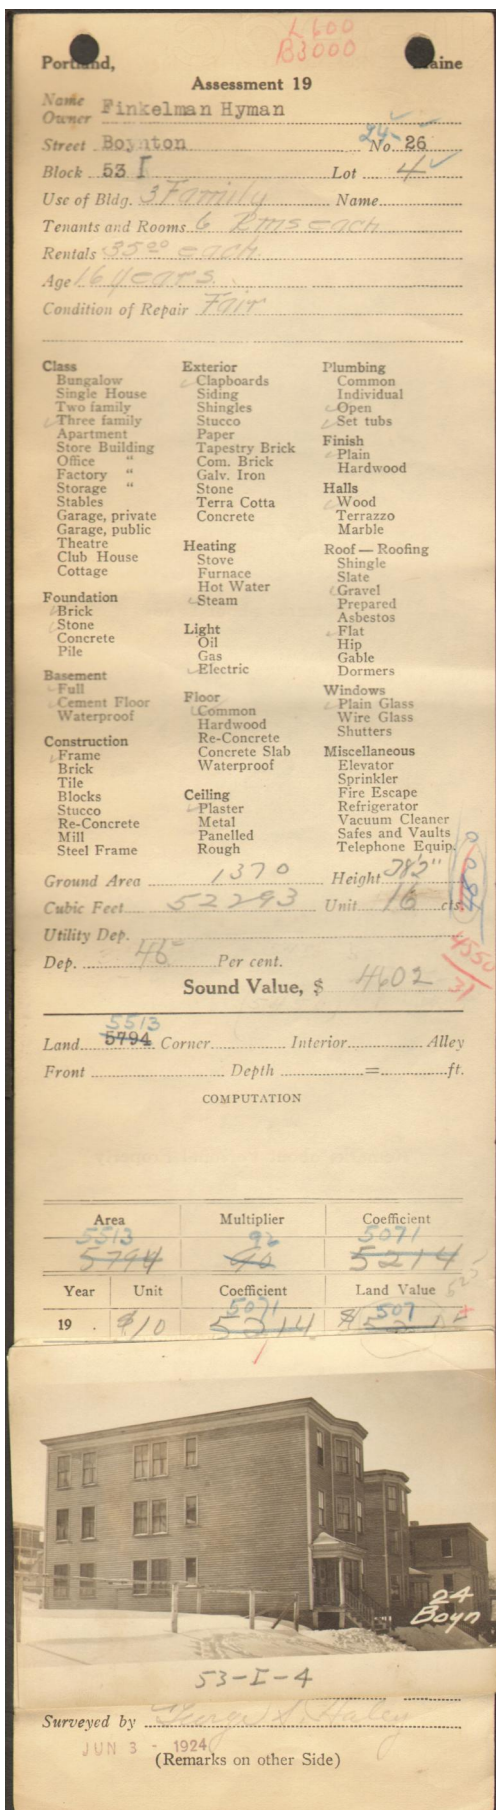 L600
B3000
Portland, Maine
Assessment 19
Name
Owner Finkelman Hyman
Street Boynton 24- No. 26
Block 53 I Lot 4
Use of Bldg. 3 Family Name
Tenants and Rooms 6 Rms each
Rentals 3500 each.
Age 16 years.
Condition of Repair Fair
Class
Bungalow
Single House
Two family
Three family
Apartment
Store Building
Office "
Factory "
Storage "
Stables
Garage, private
Garage, public
Theatre
Club House
Cottage
Foundation
Brick
Stone
Concrete
Pile
Basement
Full
Cement Floor
Waterproof
Construction
Frame
Brick
Tile
Blocks
Stucco
Re-Concrete
Mill
Steel Frame
Exterior
Clapboards
Siding
Shingles
Stucco
Paper
Tapestry Brick
Com. Brick
Galv. Iron
Stone
Terra Cotta
Concrete
Heating
Stove
Furnace
Hot Water
Steam
Light
Oil
Gas
Electric
Floor
Common
Hardwood
Re-Concrete
Concrete Slab
Waterproof
Ceiling
Plaster
Metal
Panelled
Rough
Plumbing
Common
Individual
Open
Set tubs
Finish
Plain
Hardwood
Halls
Wood
Terrazzo
Marble
Roof — Roofing
Shingle
Slate
Gravel
Prepared
Asbestos
Flat
Hip
Gable
Dormers
Windows
Plain Glass
Wire Glass
Shutters
Miscellaneous
Elevator
Sprinkler
Fire Escape
Refrigerator
Vacuum Cleaner
Safes and Vaults
Telephone Equip.
Ground Area 1370 Height 38'2"
Cubic Feet 52293 Unit 16 cts.
Utility Dep.
4550
31
Dep. 45 Per cent.
Sound Value, $ 4602
5513
Land 5794 Corner Interior Alley
Front Depth = ft.
COMPUTATION
Area Multiplier Coefficient
5513 92 5071
5794 90 5214
Year Unit Coefficient Land Value
5071 507
19 $10 5214 $
24
Boyn
53-I-4
Surveyed by George S. Haley
JUN 3 - 1924
(Remarks on other Side)